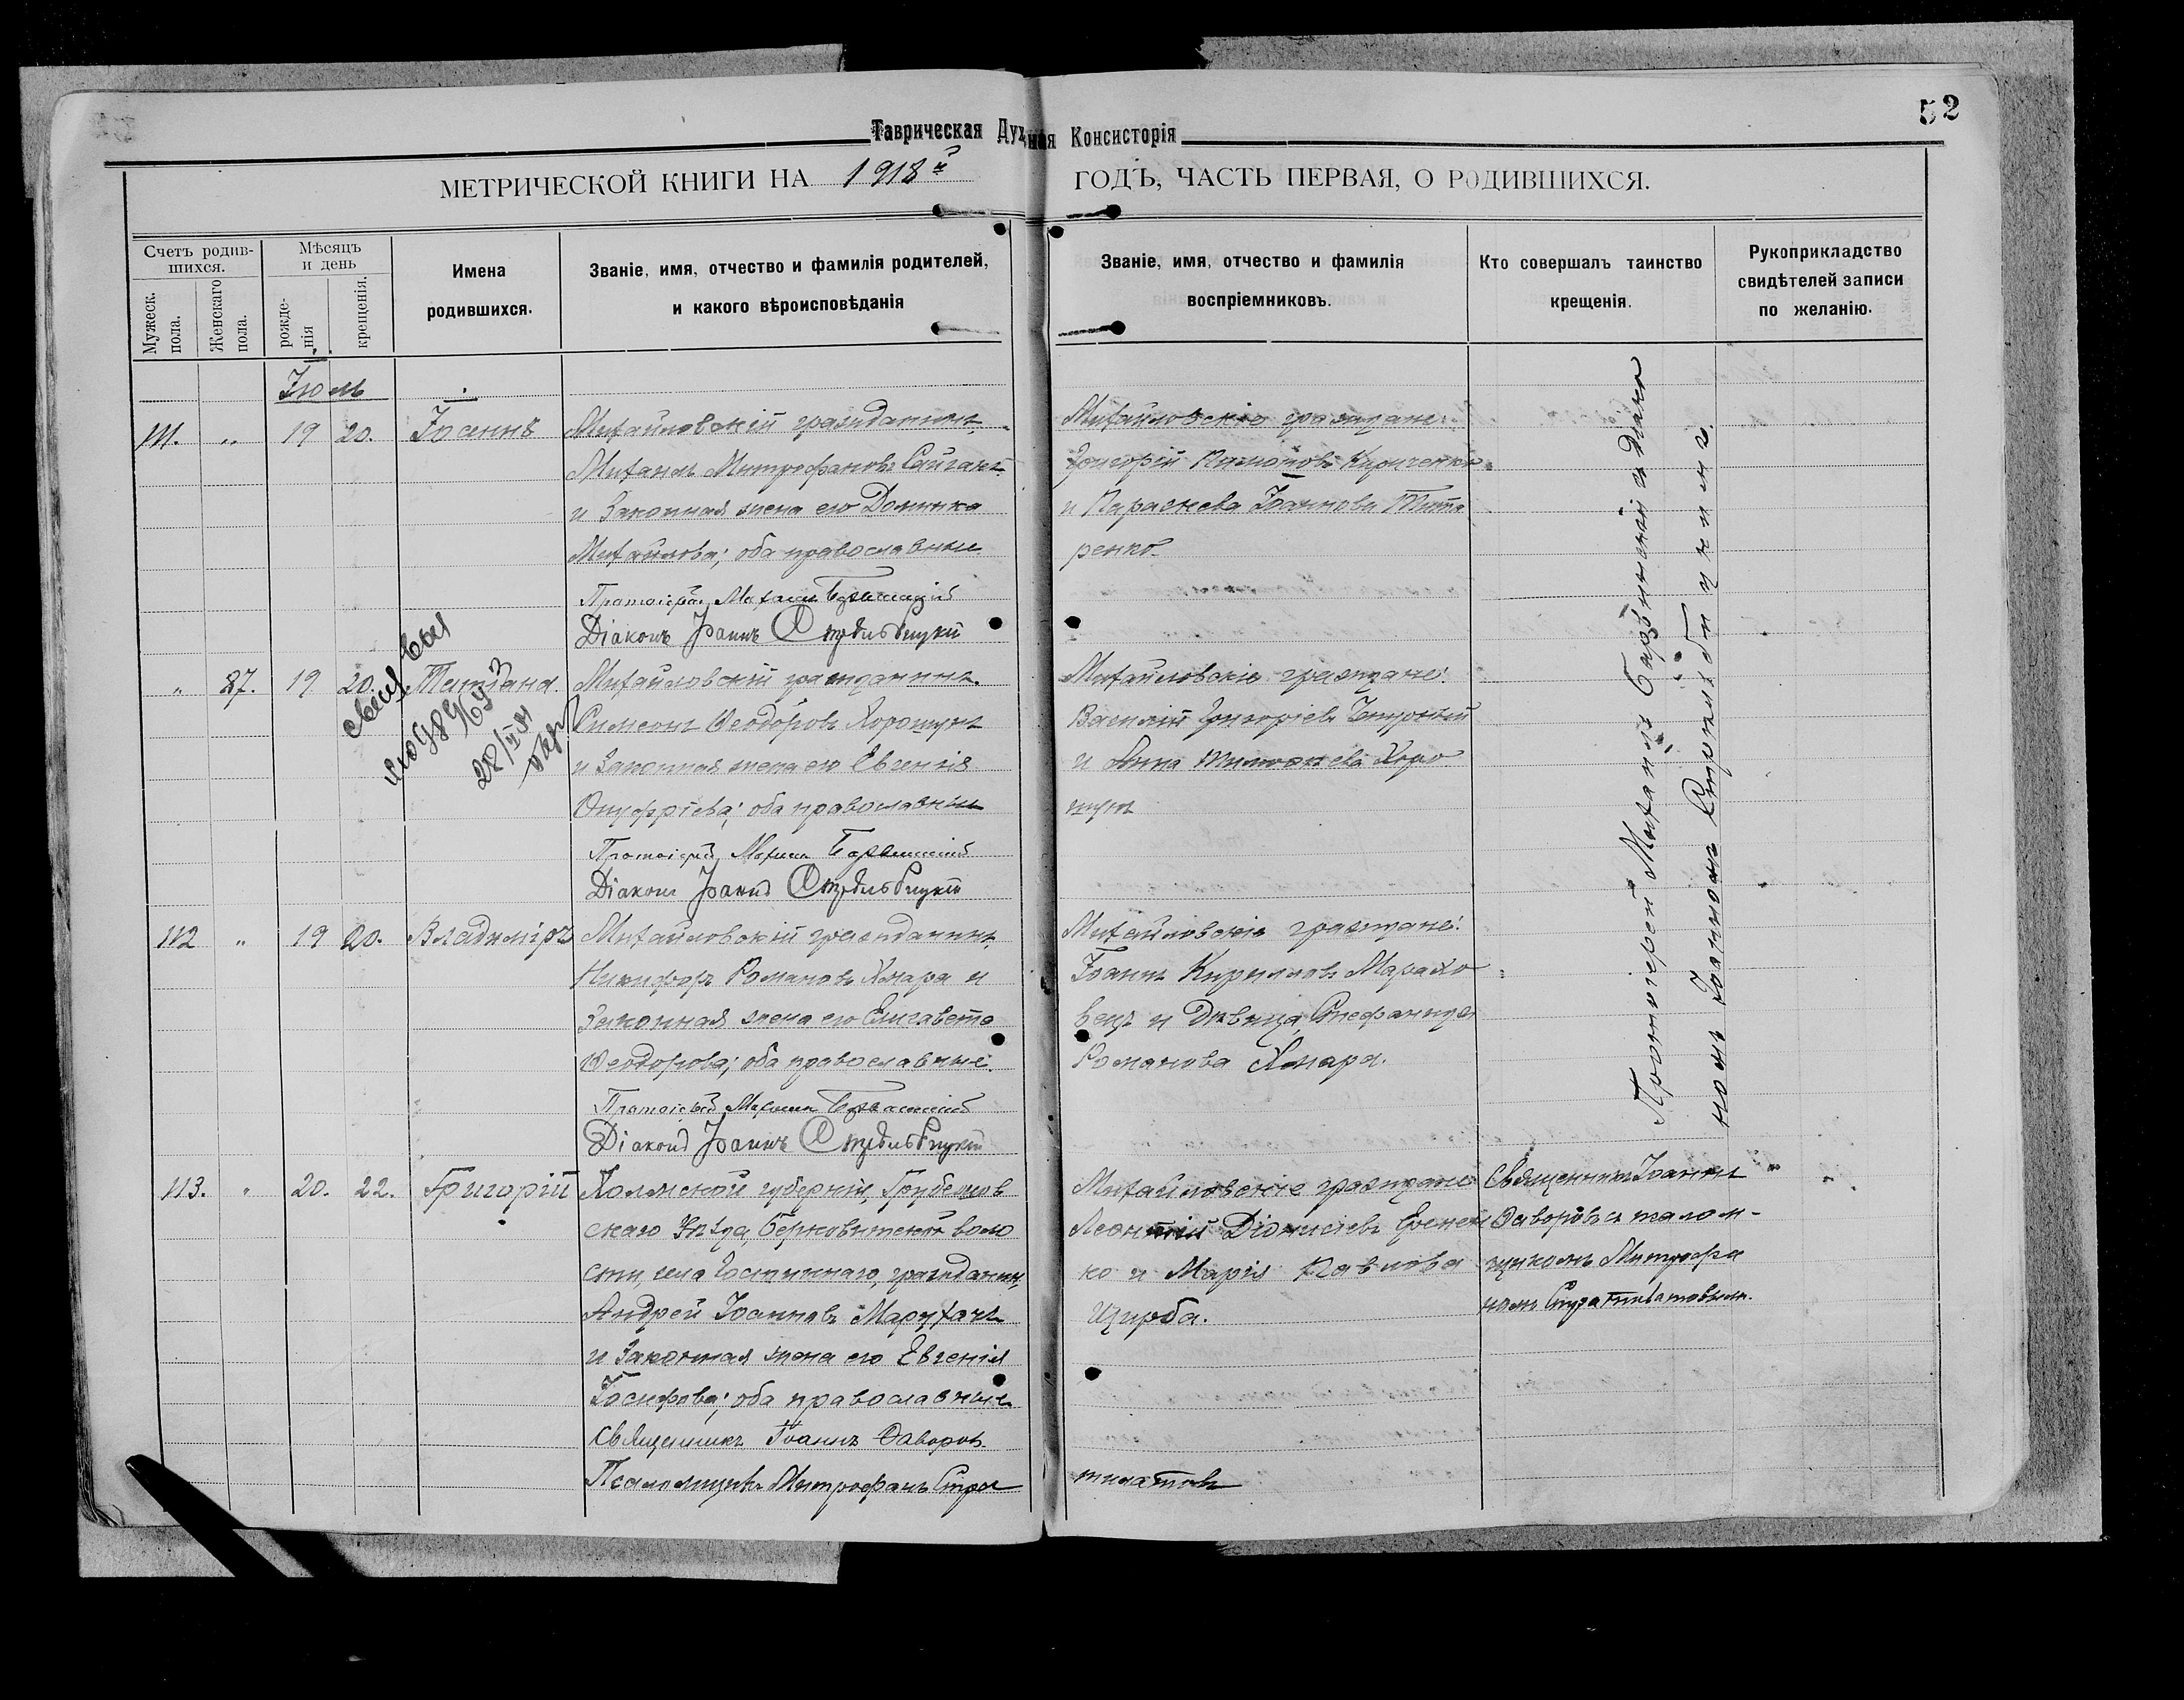 52
Таврическая Духовная Консисторія
МЕТРИЧЕСКОЙ КНИГИ НА 1918й ГОДЪ, ЧАСТЬ ПЕРВАЯ, О РОДИВШИХСЯ.
Счетъ родив-
шихся.
Мужеск.
пола.
Женскаго
пола.
Мѣсяцъ
и день
рожде-
нія
крещенія.
Имена
родившихся.
Званіе, имя, отчество и фамилія родителей,
и какого вѣроисповѣданія
Званіе, имя, отчество и фамилія
воспріемниковъ.
Кто совершалъ таинство
крещенія.
Рукоприкладство
свидѣтелей записи
по желанію.
Іюль
111. " 19 20. Іоаннъ
Михайловскій гражданинъ
Михаилъ Митрофановъ Сайганъ
и Законная жена его Домника
Михайлова; оба православныи
Протоіерей Михаилъ
Діаконъ Іоаннъ Стрельбицкій
Михайловскіе граждане
Григорій Кириченко
и Параскева Іоаннова Тита
ренко.
" 27. 19 20. Татіана
Михайловскій гражданинъ
Симеонъ Феодоровъ Хорошунъ
и Законная жена его Евгенія
Онуфріева; оба православныи
Протоіерей Михаилъ
Діаконъ Іоаннъ Стрельбицкій
Михайловскіе граждане:
Василій Григоріевъ
и Анна Тимофеева Хоро
шунъ
112 " 19 20. Владиміръ
Михайловскій гражданинъ
Никифоръ Романовъ Хмара и
Законная жена его Елисавета
Феодорова; оба православные.
Протоіерей Михаилъ
Діаконъ Іоаннъ Стрельбицкій
Михайловскіе граждане:
Іоаннъ Кирилловъ Марахо
вецъ и Дѣвица Стефанида
Романова Хмара.
Протоіерей Михаилъ съ Діако
номъ Іоанномъ Стрельбицкимъ.
113. " 20. 22. Григорій
Холмской губерніи, Грубешов
скаго Уѣзда, волo
сти, села гражданинъ
Андрей Іоанновъ Марухачъ
и Законная жена его Евгенія
Іосифова; оба православные
Священникъ Іоаннъ Фаворовъ
Псаломщикъ Митрофанъ Стра
тилатовъ
Михайловскіе граждане
Леонтій Діонисіевъ
ко и Марія Павлова
Щирба.
Священникъ Іоаннъ
Фаворовъ съ псалом-
щикомъ Митрофа
номъ Стратилатовымъ.